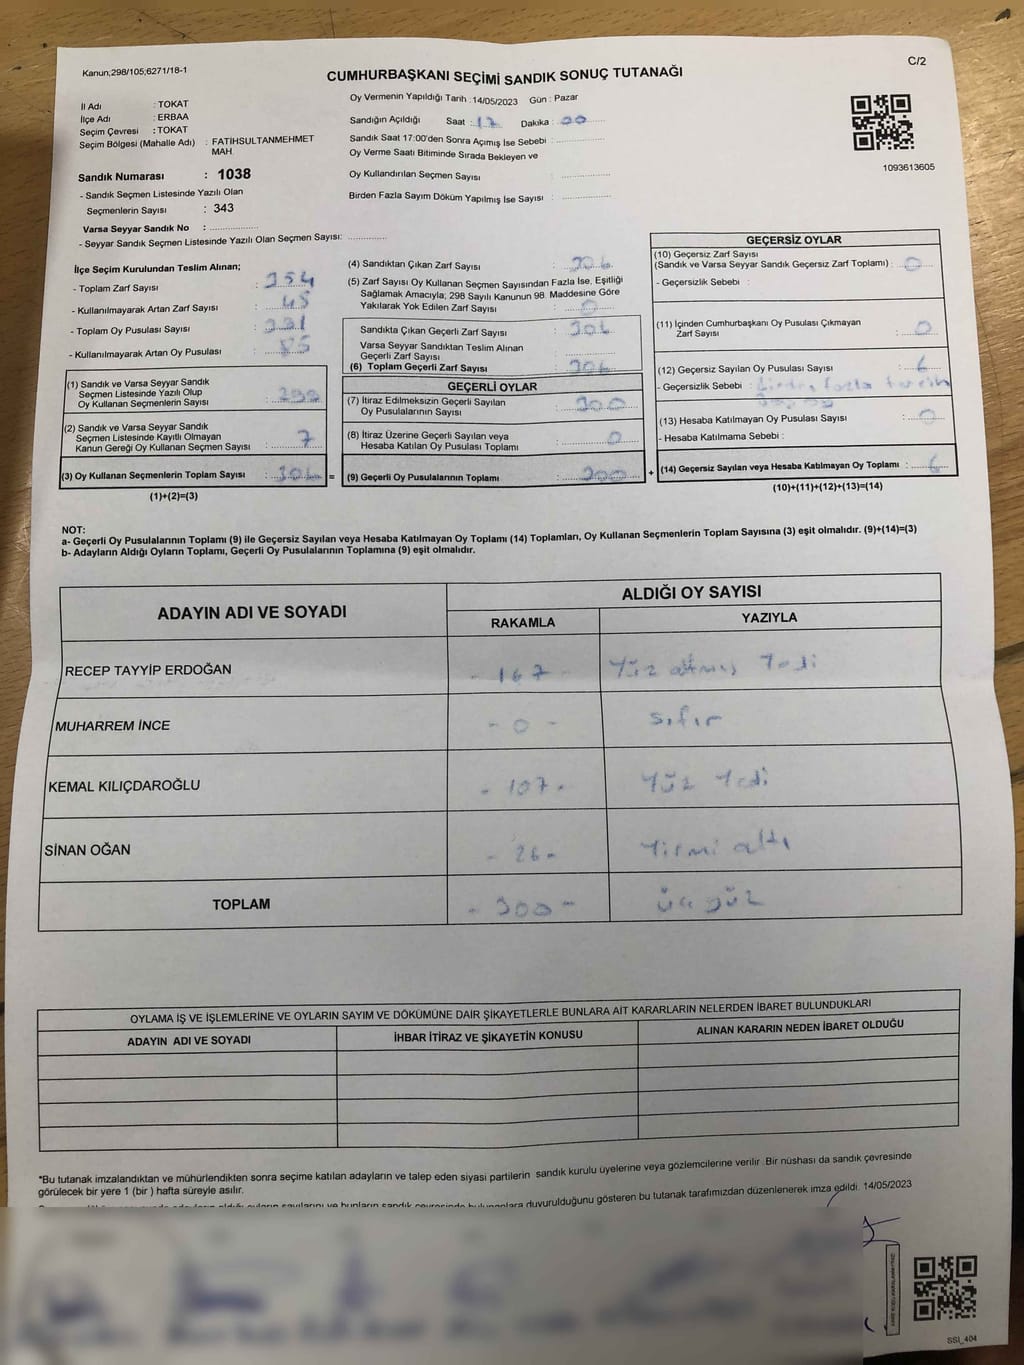 Kanun;298/105;6271/18-1
C/2
CUMHURBAŞKANI SEÇİMİ SANDIK SONUÇ TUTANAĞI
İl Adı : TOKAT
İlçe Adı : ERBAA
Seçim Çevresi : TOKAT
Seçim Bölgesi (Mahalle Adı) : FATİHSULTANMEHMET
MAH.
Sandık Numarası : 1038
- Sandık Seçmen Listesinde Yazılı Olan
Seçmenlerin Sayısı : 343
Varsa Seyyar Sandık No :
- Seyyar Sandık Seçmen Listesinde Yazılı Olan Seçmen Sayısı:
Oy Vermenin Yapıldığı Tarih : 14/05/2023 Gün : Pazar
Sandığın Açıldığı Saat : 17 Dakika : 00
Sandık Saat 17:00'den Sonra Açımış İse Sebebi :
Oy Verme Saati Bitiminde Sırada Bekleyen ve
Oy Kullandırılan Seçmen Sayısı :
Birden Fazla Sayım Döküm Yapılmış İse Sayısı :
1093613605
İlçe Seçim Kurulundan Teslim Alınan;
- Toplam Zarf Sayısı :
- Kullanılmayarak Artan Zarf Sayısı : 45
- Toplam Oy Pusulası Sayısı :
- Kullanılmayarak Artan Oy Pusulası : 85
(1) Sandık ve Varsa Seyyar Sandık
Seçmen Listesinde Yazılı Olup
Oy Kullanan Seçmenlerin Sayısı : 299
(2) Sandık ve Varsa Seyyar Sandık
Seçmen Listesinde Kayıtlı Olmayan
Kanun Gereği Oy Kullanan Seçmen Sayısı : 7
(3) Oy Kullanan Seçmenlerin Toplam Sayısı : 306 =
(1)+(2)=(3)
(4) Sandıktan Çıkan Zarf Sayısı : 306
(5) Zarf Sayısı Oy Kullanan Seçmen Sayısından Fazla İse, Eşitliği
Sağlamak Amacıyla; 298 Sayılı Kanunun 98. Maddesine Göre
Yakılarak Yok Edilen Zarf Sayısı : 0
Sandıkta Çıkan Geçerli Zarf Sayısı : 306
Varsa Seyyar Sandıktan Teslim Alınan
Geçerli Zarf Sayısı :
(6) Toplam Geçerli Zarf Sayısı : 306
GEÇERLİ OYLAR
(7) İtiraz Edilmeksizin Geçerli Sayılan
Oy Pusulalarının Sayısı : 300
(8) İtiraz Üzerine Geçerli Sayılan veya
Hesaba Katılan Oy Pusulası Toplamı : 0
(9) Geçerli Oy Pusulalarının Toplamı : 300 +
GEÇERSİZ OYLAR
(10) Geçersiz Zarf Sayısı
(Sandık ve Varsa Seyyar Sandık Geçersiz Zarf Toplamı) : 0
- Geçersizlik Sebebi :
(11) İçinden Cumhurbaşkanı Oy Pusulası Çıkmayan
Zarf Sayısı : 0
(12) Geçersiz Sayılan Oy Pusulası Sayısı : 6
- Geçersizlik Sebebi : Birden fazla tercih
(13) Hesaba Katılmayan Oy Pusulası Sayısı : 0
- Hesaba Katılmama Sebebi :
(14) Geçersiz Sayılan veya Hesaba Katılmayan Oy Toplamı : 6
(10)+(11)+(12)+(13)=(14)
NOT:
a- Geçerli Oy Pusulalarının Toplamı (9) ile Geçersiz Sayılan veya Hesaba Katılmayan Oy Toplamı (14) Toplamları, Oy Kullanan Seçmenlerin Toplam Sayısına (3) eşit olmalıdır. (9)+(14)=(3)
b- Adayların Aldığı Oyların Toplamı, Geçerli Oy Pusulalarının Toplamına (9) eşit olmalıdır.
ADAYIN ADI VE SOYADI
ALDIĞI OY SAYISI
RAKAMLA YAZIYLA
RECEP TAYYİP ERDOĞAN - 167 - Yüz altmış Yedi
MUHARREM İNCE - 0 - sıfır
KEMAL KILIÇDAROĞLU - 107 - Yüz Yedi
SİNAN OĞAN - 26 - Yirmi altı
TOPLAM - 300 - üç yüz
OYLAMA İŞ VE İŞLEMLERİNE VE OYLARIN SAYIM VE DÖKÜMÜNE DAİR ŞİKAYETLERLE BUNLARA AİT KARARLARIN NELERDEN İBARET BULUNDUKLARI
ADAYIN ADI VE SOYADI İHBAR İTİRAZ VE ŞİKAYETİN KONUSU ALINAN KARARIN NEDEN İBARET OLDUĞU
*Bu tutanak imzalandıktan ve mühürlendikten sonra seçime katılan adayların ve talep eden siyasi partilerin sandık kurulu üyelerine veya gözlemcilerine verilir. Bir nüshası da sandık çevresinde
görülecek bir yere 1 (bir ) hafta süreyle asılır.
duyurulduğunu gösteren bu tutanak tarafımızdan düzenlenerek imza edildi. 14/05/2023
SSI_404